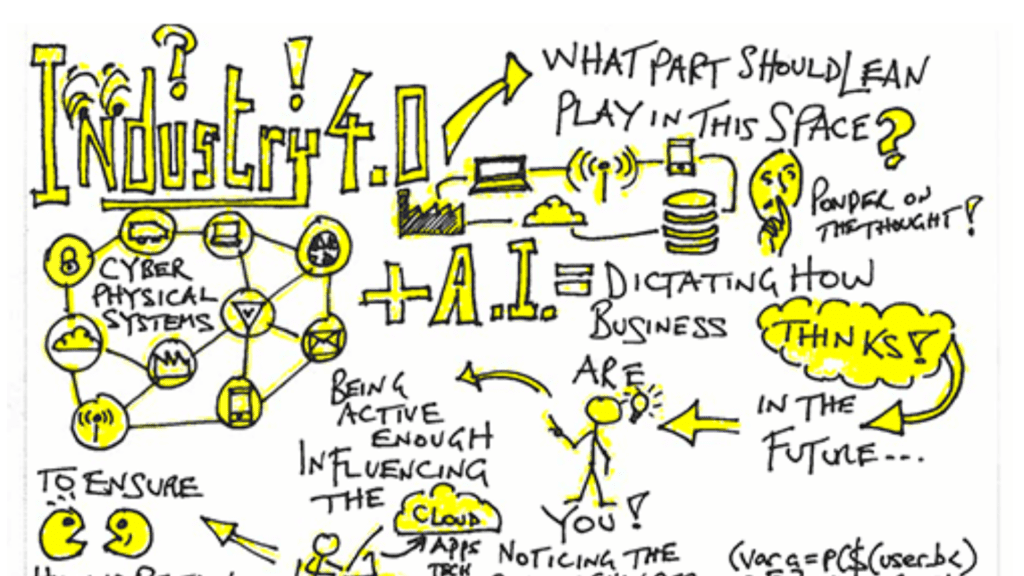 Industry 4.0
? !
WHAT PART SHOULD LEAN
PLAY IN THIS SPACE?
PONDER ON
THE THOUGHT!
CYBER
PHYSICAL
SYSTEMS
+ A.I. = DICTATING HOW
BUSINESS
THINKS!
IN THE
FUTURE...
ARE
YOU!
BEING
ACTIVE
ENOUGH
INFLUENCING
THE
CLOUD
APPS
TECH
TO ENSURE
NOTICING THE
(var a=p($(user.b<)